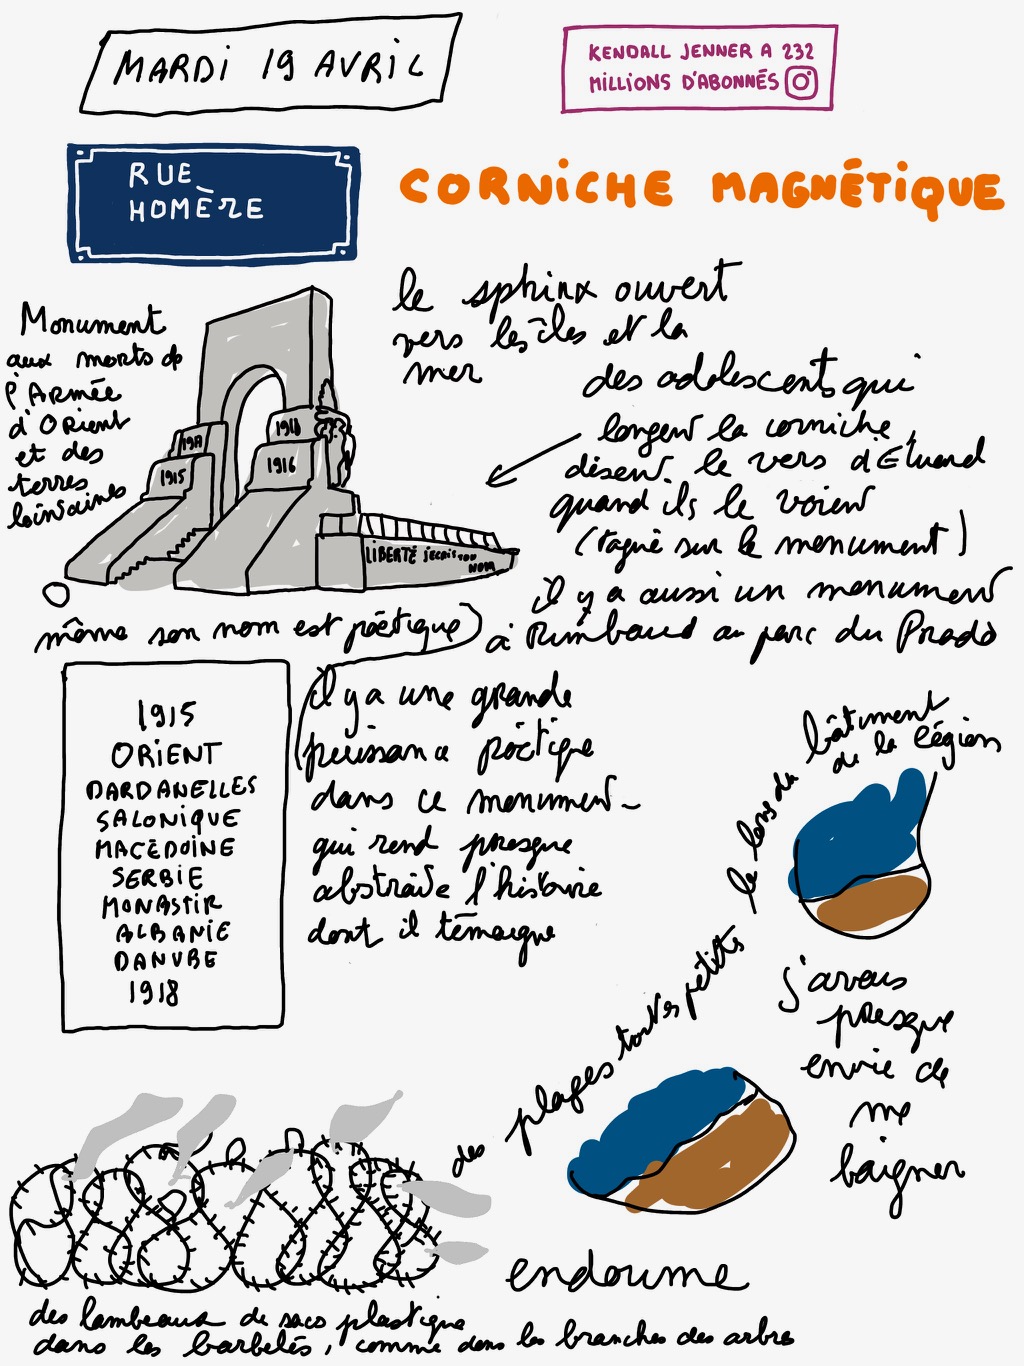 MARDI 19 AVRIL
KENDALL JENNER A 232
MILLIONS D'ABONNÉS
RUE
HOMÈRE
CORNICHE MAGNÉTIQUE
le sphinx ouvert
vers les îles et la
mer
Monument
aux morts de
l'Armée
d'Orient
et des
terres
lointaines
1915
1916
1918
LIBERTÉ j'écris ton
NOM
des adolescents qui
longent la corniche,
disent le vers d'Eluard
quand ils le voient
(tagué sur le monument)
il y a aussi un monument
à Rimbaud au parc du Prado
même son nom est poétique
1915
ORIENT
DARDANELLES
SALONIQUE
MACÉDOINE
SERBIE
MONASTIR
ALBANIE
DANUBE
1918
il y a une grande
puissance poétique
dans ce monument
qui rend presque
abstraite l'histoire
dont il témoigne
des plages toutes petites le long du
bâtiment
de la légion
j'avais
presque
envie de
me
baigner
endoume
des lambeaux de sacs plastique
dans les barbelés, comme dans les branches des arbres